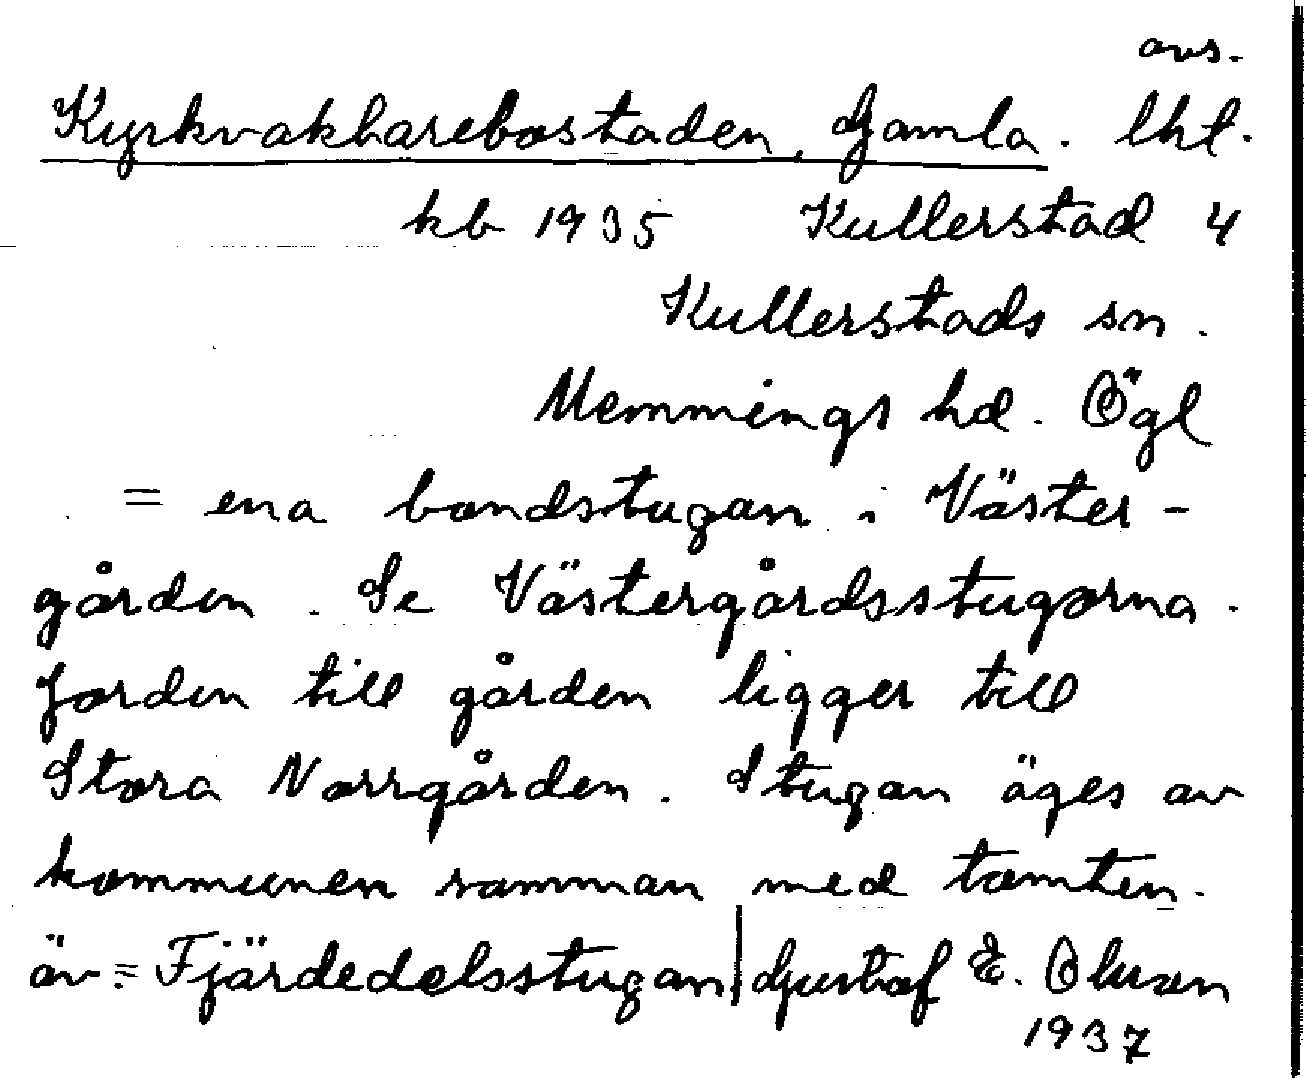 avs.
Kyrkvaktarebostaden, Gamla. lht.
kb 1935 Kullerstad 4
Kullerstads sn.
Memmings hd. Ögl
= ena bondstugan i Väster-
gården. Se Västergårdsstugorna.
Jorden till gården ligger till
Stora Norrgården. Stugan äges av
kommunen samman med tomten.
äv = Fjärdedelsstugan | Gustaf E. Olsson
1937